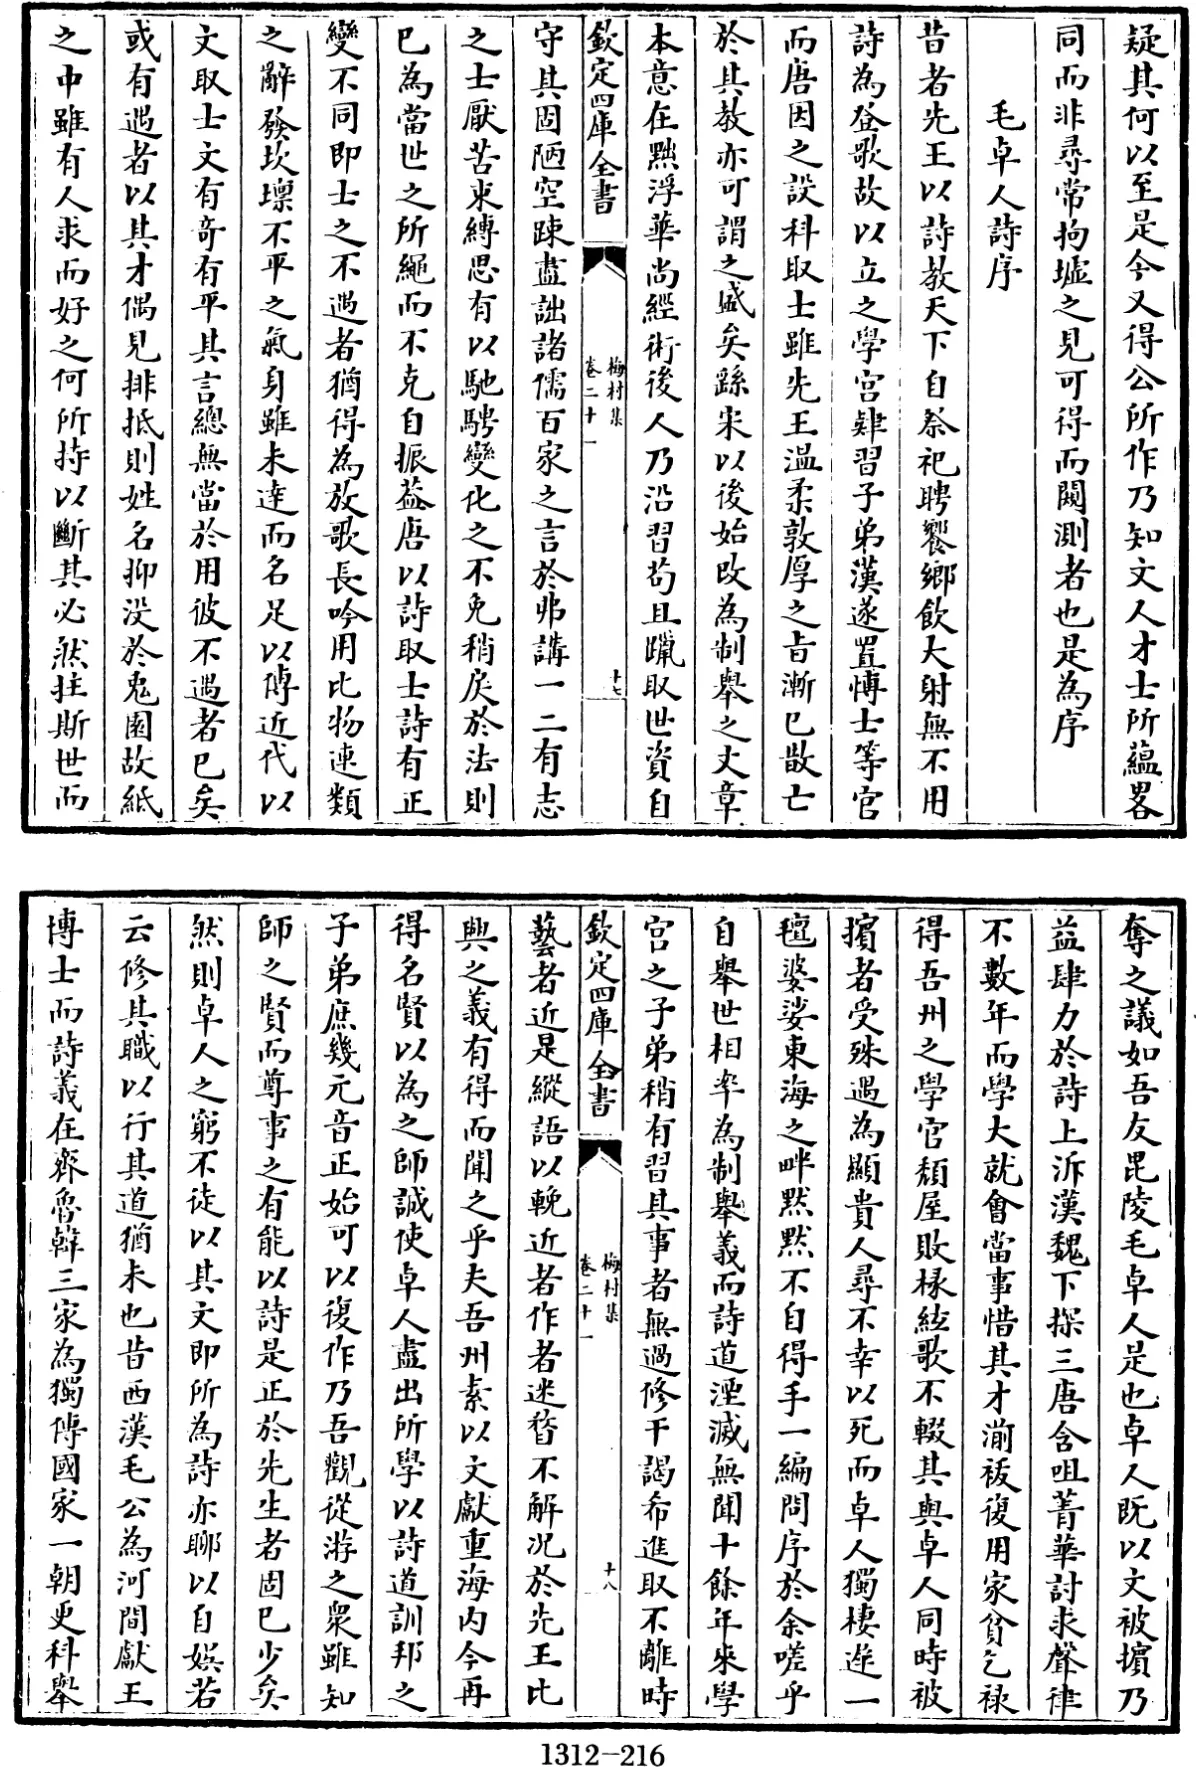 疑其何以至是今又得公所作乃知文人才士所蘊畧
同而非尋常拘墟之見可得而闚測者也是為序
毛卓人詩序
昔者先王以詩教天下自祭祀聘饗鄉飲大射無不用
詩為登歌故以立之學宮肄習子弟漢遂置博士等官
而唐因之設科取士雖先王溫柔敦厚之旨漸已散亡
於其教亦可謂之盛矣繇宋以後始改為制舉之文章
本意在黜浮華尚經術後人乃沿習苟且躐取世資自
欽定四庫全書
梅村集
卷二十一
十七
守其固陋空疎盡詘諸儒百家之言於弗講一二有志
之士厭苦束縛思有以馳騁變化之不免稍戾於法則
已為當世之所繩而不克自振葢唐以詩取士詩有正
變不同即士之不遇者猶得為放歌長吟用比物連類
之辭發坎壈不平之氣身雖未達而名足以傳近代以
文取士文有奇有平其言總無當於用彼不遇者已矣
或有遇者以其才偶見排抵則姓名抑没於兎園故紙
之中雖有人求而好之何所持以斷其必然抂斯世而
奪之議如吾友毘陵毛卓人是也卓人既以文被擯乃
益肆力於詩上泝漢魏下探三唐含咀菁華討求聲律
不數年而學大就會當事惜其才湔祓復用家貧乞禄
得吾州之學官頹屋敗椽絃歌不輟其與卓人同時被
擯者受殊遇為顯貴人尋不幸以死而卓人獨棲遲一
氊婆娑東海之畔黙黙不自得手一編問序於余嗟乎
自舉世相率為制舉義而詩道湮滅無聞十餘年來學
宫之子弟稍有習其事者無過修干謁希進取不離時
欽定四庫全書
梅村集
卷二十一
十八
藝者近是縱語以輓近者作者迷瞀不解况於先王比
興之義有得而聞之乎夫吾州素以文獻重海内今再
得名賢以為之師誠使卓人盡出所學以詩道訓邦之
子弟庶幾元音正始可以復作乃吾觀從游之衆雖知
師之賢而尊事之有能以詩是正於先生者固已少矣
然則卓人之窮不徒以其文即所為詩亦聊以自娱若
云修其職以行其道猶未也昔西漢毛公為河間獻王
博士而詩義在齊魯韓三家為獨傳國家一朝更科舉
1312-216